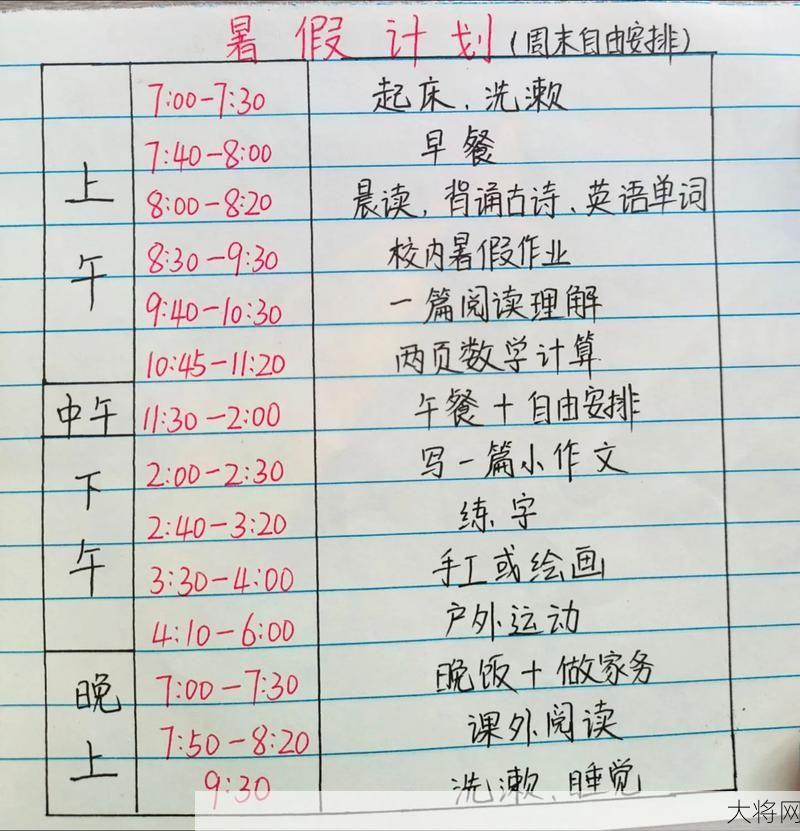 暑假计划(周末自由安排)
上午
7:00-7:30 起床、洗漱
7:40-8:00 早餐
8:00-8:20 晨读,背诵古诗、英语单词
8:30-9:30 校内暑假作业
9:40-10:30 一篇阅读理解
10:45-11:20 两页数学计算
中午
11:30-2:00 午餐+自由安排
下午
2:00-2:30 写一篇小作文
2:40-3:20 练字
3:30-4:00 手工或绘画
4:10-6:00 户外运动
晚上
7:00-7:30 晚饭+做家务
7:50-8:20 课外阅读
9:30 洗漱、睡觉
大将网